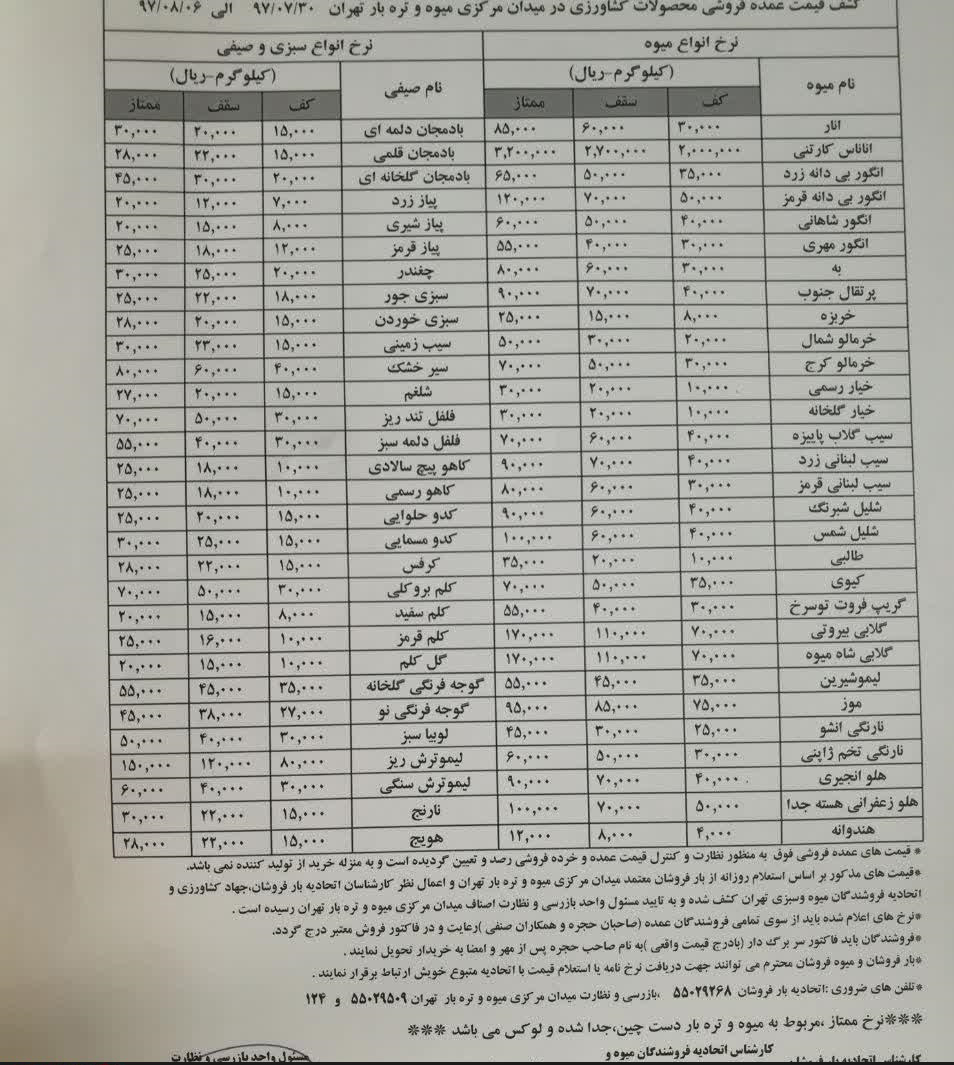 کشف قیمت عمده فروشی محصولات کشاورزی در میدان مرکزی میوه و تره بار تهران ۹۷/۰۷/۳۰ الی ۹۷/۰۸/۰۶
نرخ انواع میوه نرخ انواع سبزی و صیفی
نام میوه (کیلوگرم-ریال) نام صیفی (کیلوگرم-ریال)
کف سقف ممتاز کف سقف ممتاز
انار ۳۰,۰۰۰ ۶۰,۰۰۰ ۸۵,۰۰۰ بادمجان دلمه ای ۱۵,۰۰۰ ۲۰,۰۰۰ ۳۰,۰۰۰
اناناس کارتنی ۲,۰۰۰,۰۰۰ ۲,۷۰۰,۰۰۰ ۳,۲۰۰,۰۰۰ بادمجان قلمی ۱۵,۰۰۰ ۲۲,۰۰۰ ۲۸,۰۰۰
انگور بی دانه زرد ۳۵,۰۰۰ ۵۰,۰۰۰ ۶۵,۰۰۰ بادمجان گلخانه ای ۲۰,۰۰۰ ۳۰,۰۰۰ ۴۵,۰۰۰
انگور بی دانه قرمز ۵۰,۰۰۰ ۷۰,۰۰۰ ۱۲۰,۰۰۰ پیاز زرد ۷,۰۰۰ ۱۲,۰۰۰ ۲۰,۰۰۰
انگور شاهانی ۴۰,۰۰۰ ۵۰,۰۰۰ ۶۰,۰۰۰ پیاز شیری ۸,۰۰۰ ۱۵,۰۰۰ ۲۰,۰۰۰
انگور مهری ۳۰,۰۰۰ ۴۰,۰۰۰ ۵۵,۰۰۰ پیاز قرمز ۱۲,۰۰۰ ۱۸,۰۰۰ ۲۵,۰۰۰
به ۳۰,۰۰۰ ۶۰,۰۰۰ ۸۰,۰۰۰ چغندر ۲۰,۰۰۰ ۲۵,۰۰۰ ۳۰,۰۰۰
پرتقال جنوب ۴۰,۰۰۰ ۷۰,۰۰۰ ۹۰,۰۰۰ سبزی جور ۱۸,۰۰۰ ۲۲,۰۰۰ ۲۵,۰۰۰
خربزه ۸,۰۰۰ ۱۵,۰۰۰ ۲۵,۰۰۰ سبزی خوردن ۱۵,۰۰۰ ۲۰,۰۰۰ ۲۸,۰۰۰
خرمالو شمال ۲۰,۰۰۰ ۳۰,۰۰۰ ۵۰,۰۰۰ سیب زمینی ۱۵,۰۰۰ ۲۳,۰۰۰ ۳۰,۰۰۰
خرمالو کرج ۳۰,۰۰۰ ۵۰,۰۰۰ ۷۰,۰۰۰ سیر خشک ۴۰,۰۰۰ ۶۰,۰۰۰ ۸۰,۰۰۰
خیار رسمی ۱۰,۰۰۰ ۲۰,۰۰۰ ۳۰,۰۰۰ شلغم ۱۵,۰۰۰ ۲۰,۰۰۰ ۲۷,۰۰۰
خیار گلخانه ۱۰,۰۰۰ ۲۰,۰۰۰ ۳۰,۰۰۰ فلفل تند ریز ۳۰,۰۰۰ ۵۰,۰۰۰ ۷۰,۰۰۰
سیب گلاب پاییزه ۴۰,۰۰۰ ۶۰,۰۰۰ ۷۰,۰۰۰ فلفل دلمه سبز ۳۰,۰۰۰ ۴۰,۰۰۰ ۵۵,۰۰۰
سیب لبنانی زرد ۴۰,۰۰۰ ۷۰,۰۰۰ ۹۰,۰۰۰ کاهو پیچ سالادی ۱۰,۰۰۰ ۱۸,۰۰۰ ۲۵,۰۰۰
سیب لبنانی قرمز ۳۰,۰۰۰ ۶۰,۰۰۰ ۸۰,۰۰۰ کاهو رسمی ۱۰,۰۰۰ ۱۸,۰۰۰ ۲۵,۰۰۰
شلیل شبرنگ ۴۰,۰۰۰ ۶۰,۰۰۰ ۹۰,۰۰۰ کدو حلوایی ۱۵,۰۰۰ ۲۰,۰۰۰ ۲۵,۰۰۰
شلیل شمس ۴۰,۰۰۰ ۶۰,۰۰۰ ۱۰۰,۰۰۰ کدو مسمایی ۱۵,۰۰۰ ۲۵,۰۰۰ ۳۰,۰۰۰
طالبی ۱۰,۰۰۰ ۲۰,۰۰۰ ۳۵,۰۰۰ کرفس ۱۵,۰۰۰ ۲۲,۰۰۰ ۲۸,۰۰۰
کیوی ۳۵,۰۰۰ ۵۰,۰۰۰ ۷۰,۰۰۰ کلم بروکلی ۳۰,۰۰۰ ۵۰,۰۰۰ ۷۰,۰۰۰
گریپ فروت توسرخ ۳۰,۰۰۰ ۴۰,۰۰۰ ۵۵,۰۰۰ کلم سفید ۸,۰۰۰ ۱۵,۰۰۰ ۲۰,۰۰۰
گلابی بیروتی ۷۰,۰۰۰ ۱۱۰,۰۰۰ ۱۷۰,۰۰۰ کلم قرمز ۱۰,۰۰۰ ۱۶,۰۰۰ ۲۵,۰۰۰
گلابی شاه میوه ۷۰,۰۰۰ ۱۱۰,۰۰۰ ۱۷۰,۰۰۰ گل کلم ۱۰,۰۰۰ ۱۵,۰۰۰ ۲۰,۰۰۰
لیموشیرین ۳۵,۰۰۰ ۴۵,۰۰۰ ۵۵,۰۰۰ گوجه فرنگی گلخانه ۳۵,۰۰۰ ۴۵,۰۰۰ ۵۵,۰۰۰
موز ۷۵,۰۰۰ ۸۵,۰۰۰ ۹۵,۰۰۰ گوجه فرنگی نو ۲۷,۰۰۰ ۳۸,۰۰۰ ۴۵,۰۰۰
نارنگی انشو ۲۵,۰۰۰ ۳۰,۰۰۰ ۴۵,۰۰۰ لوبیا سبز ۳۰,۰۰۰ ۴۰,۰۰۰ ۵۰,۰۰۰
نارنگی تخم ژاپنی ۳۰,۰۰۰ ۵۰,۰۰۰ ۶۰,۰۰۰ لیموترش ریز ۸۰,۰۰۰ ۱۲۰,۰۰۰ ۱۵۰,۰۰۰
هلو انجیری ۴۰,۰۰۰ ۷۰,۰۰۰ ۹۰,۰۰۰ لیموترش سنگی ۳۰,۰۰۰ ۴۰,۰۰۰ ۶۰,۰۰۰
هلو زعفرانی هسته جدا ۵۰,۰۰۰ ۷۰,۰۰۰ ۱۰۰,۰۰۰ نارنج ۱۵,۰۰۰ ۲۲,۰۰۰ ۳۰,۰۰۰
هندوانه ۴,۰۰۰ ۸,۰۰۰ ۱۲,۰۰۰ هویج ۱۵,۰۰۰ ۲۲,۰۰۰ ۲۸,۰۰۰
* قیمت های عمده فروشی فوق به منظور نظارت و کنترل قیمت عمده و خرده فروشی رصد و تعیین گردیده است و به منزله خرید از تولید کننده نمی باشد.
*قیمت های مذکور بر اساس استعلام روزانه از بار فروشان معتمد میدان مرکزی میوه و تره بار تهران و اعمال نظر کارشناسان اتحادیه بار فروشان،جهاد کشاورزی و
اتحادیه فروشندگان میوه وسبزی تهران کشف شده و به تایید مسئول واحد بازرسی و نظارت اصناف میدان مرکزی میوه و تره بار تهران رسیده است .
*نرخ های اعلام شده باید از سوی تمامی فروشندگان عمده (صاحبان حجره و همکاران صنفی )رعایت و در فاکتور فروش معتبر درج گردد.
*فروشندگان باید فاکتور سر برگ دار (بادرج قیمت واقعی )به نام صاحب حجره پس از مهر و امضا به خریدار تحویل نمایند .
*بار فروشان و میوه فروشان محترم می توانند جهت دریافت نرخ نامه یا استعلام قیمت با اتحادیه متبوع خویش ارتباط برقرار نمایند .
*تلفن های ضروری :اتحادیه بار فروشان ۵۵۰۲۹۲۶۸ ،بازرسی و نظارت میدان مرکزی میوه و تره بار تهران ۵۵۰۲۹۵۰۹ و ۱۲۴
***نرخ ممتاز ،مربوط به میوه و تره بار دست چین،جدا شده و لوکس می باشد ***
کارشناس اتحادیه بار فروشان کارشناس اتحادیه فروشندگان میوه و مسئول واحد بازرسی و نظارت